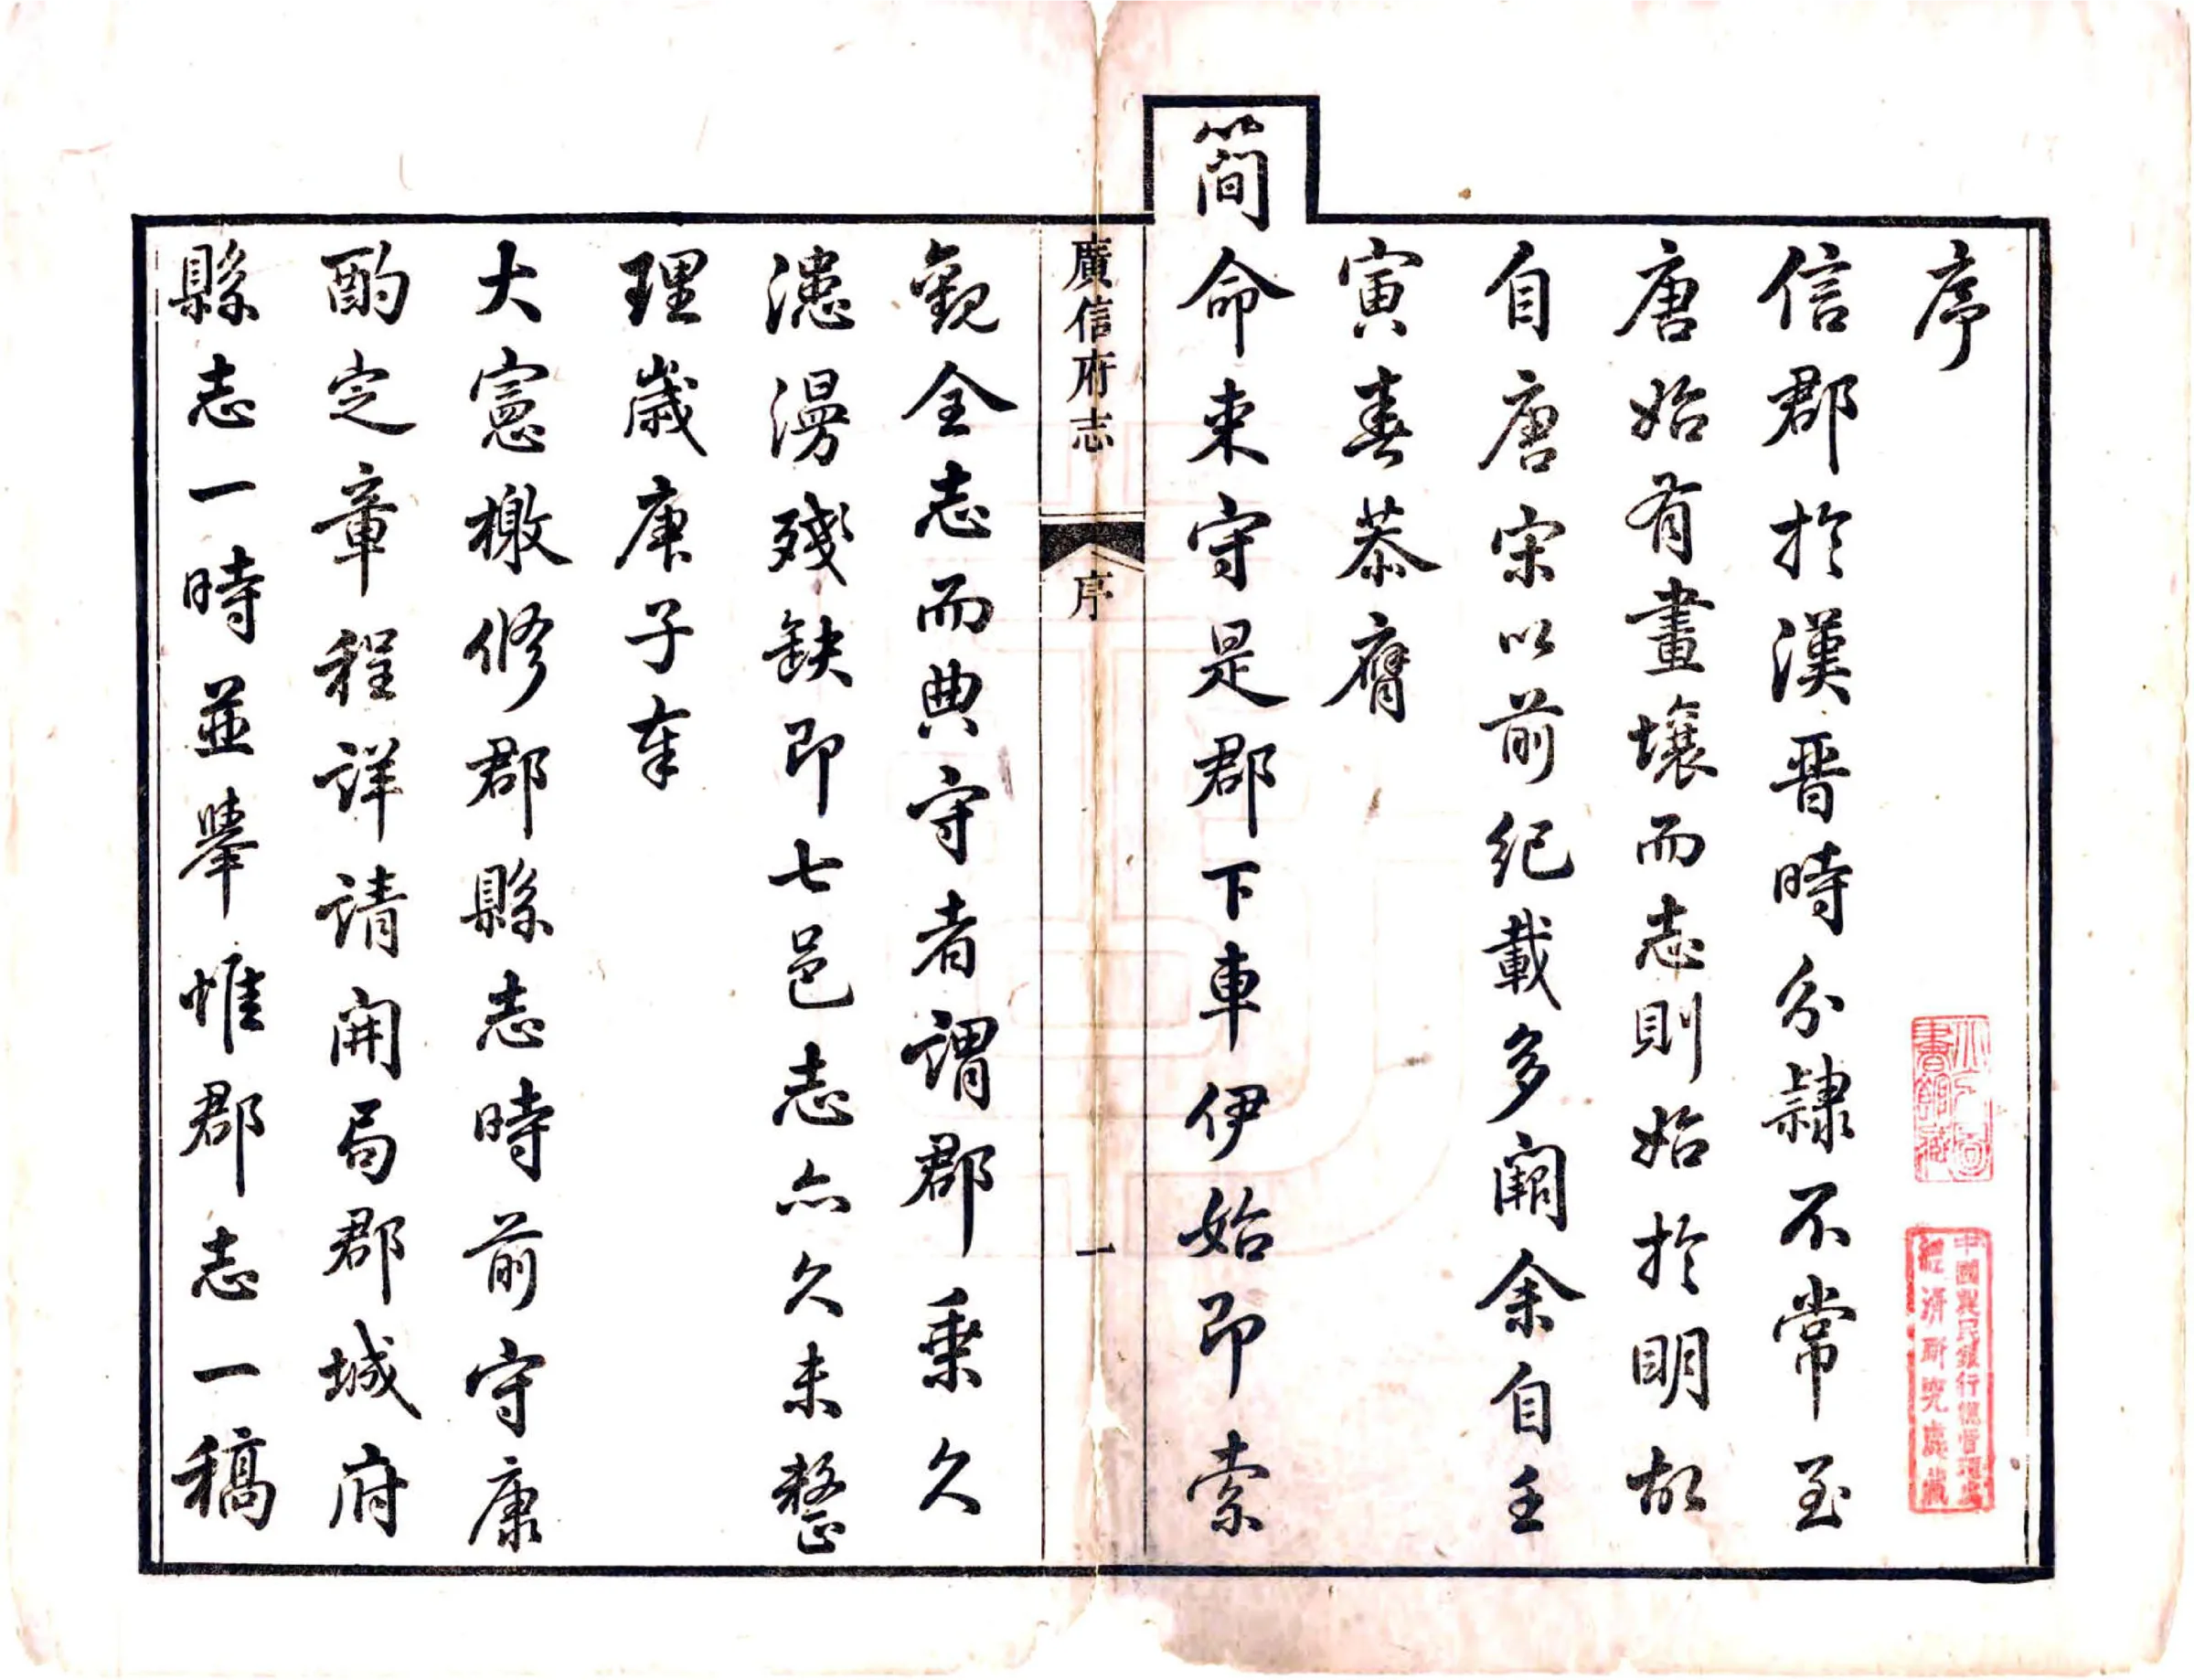 序
信郡於漢晋時分隸不常至
唐始有畫壤而志則始於明故
自唐宋以前紀載多闕余自壬
寅春恭膺
簡命来守是郡下車伊始即索
觀全志而典守者謂郡乗久
漶漫殘缺即七邑志亦久未整
理歲庚子奉
大憲檄修郡縣志時前守康
酌定章程詳請開局郡城府
縣志一時並舉惟郡志一稿
廣信府志
序
一
中國農民銀行總管理處
經濟研究處藏